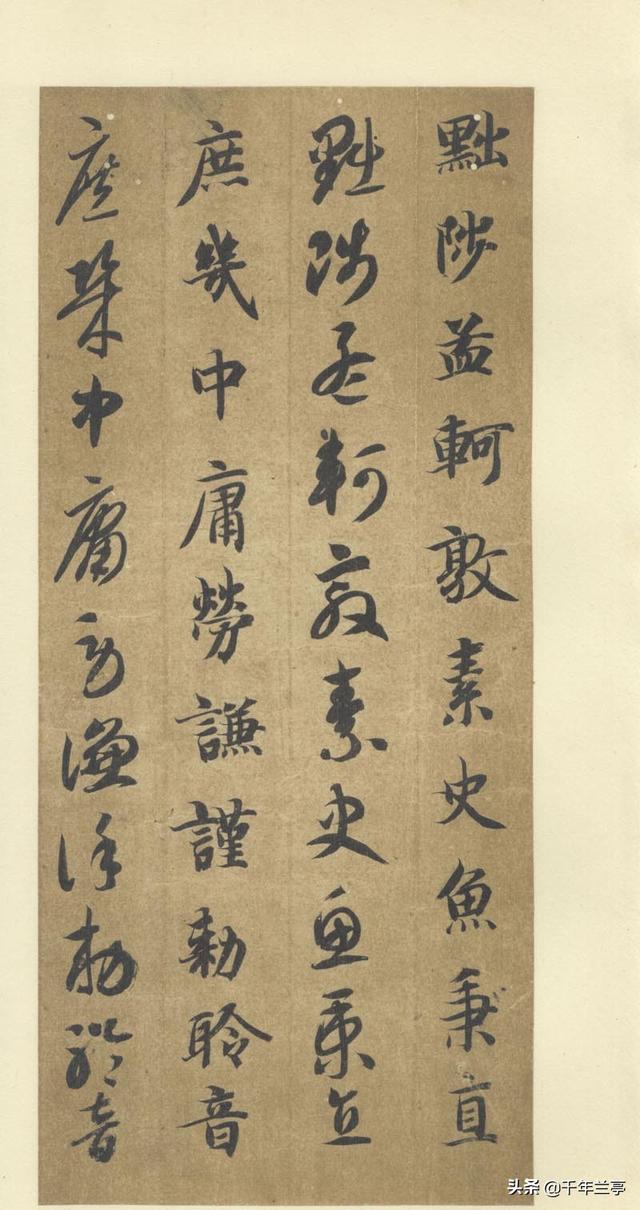 黜陟孟軻敦素史魚秉直
黜陟孟軻敦素史魚秉直
庶幾中庸勞謙謹勅聆音
庶幾中庸勞謙謹勅聆音
头条 @千年兰亭